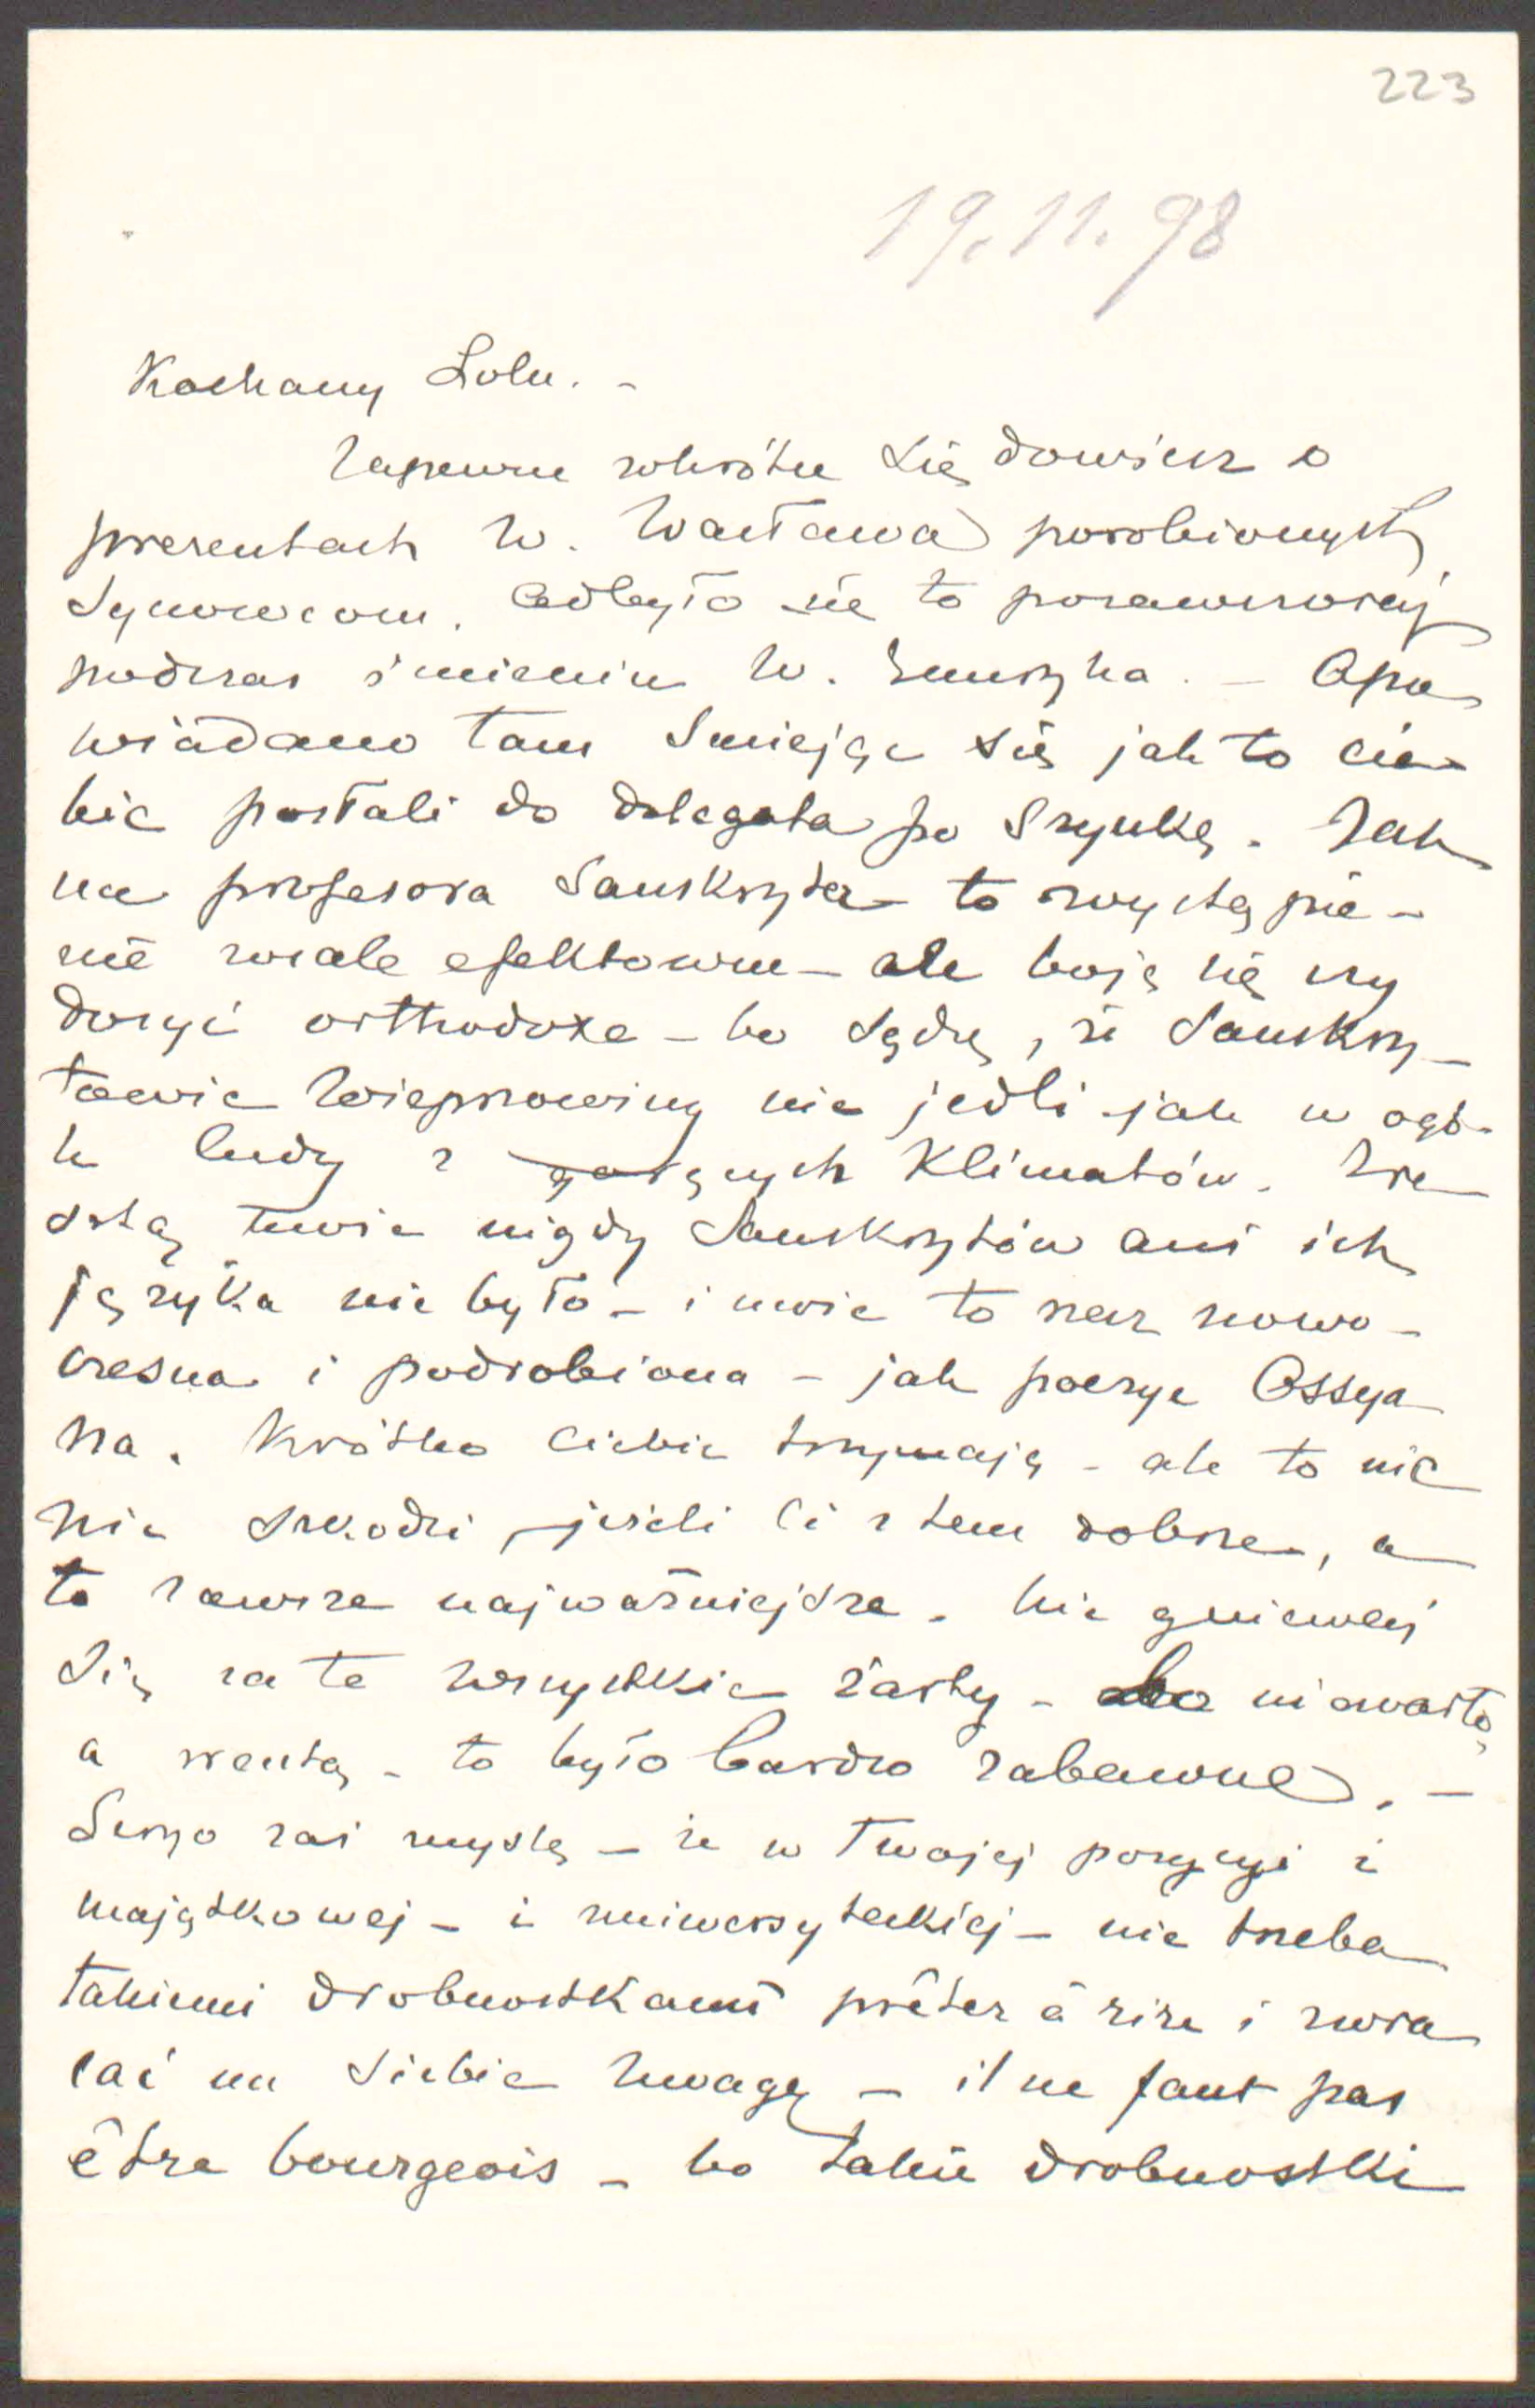 223
19.11.98
Kochany Lolu. -
Zapewne wkrótce się dowiesz o
prezentach W. Wacława porobionych
Synowcom. Odbyło się to pozawczoraj
podczas imienin W. Henryka. - Opo
wiadano tam śmiejąc się jak to cie-
bie posłali do delegata po Szynkę. Jak
na profesora Sanskrytu to wystąpie-
nie wcale efektowne - ale boję się czy
dosyć orthodoxe - bo sądzę, że Sanskry-
towie Wieprzowiny nie jedli jak w ogó-
le ludy z gorących Klimatów. Zre
sztą mnie nigdy Sanskrytów ani ich
języka nie było - i mnie to rzecz nowo-
czesna i podrobiona - jak poezye Ossya
na. Krótko Ciebie trzymają - ale to nic
nie szkodzi, jeżeli Ci z tem dobrze, a
to zawsze najważniejsze. Nie gniewaj
się za te wszystkie żarty - bo niewarto,
a zresztą - to było bardzo zabawne. -
Seryo zaś myślę - że w Twojej pozycyi i
majątkowej - i uniwersyteckiej - nie trzeba
takiemi drobnostkami prêter à rire i zwra
cać na siebie uwagę - il ne faut pas
être bourgeois - bo takie drobnostki